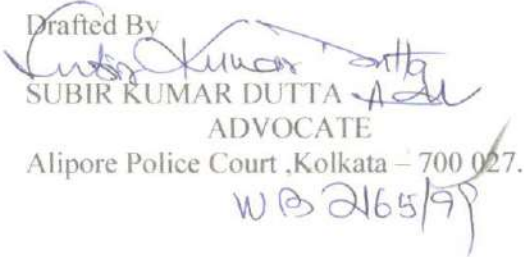 Drafted By
Subir Kumar Dutta Adv
SUBIR KUMAR DUTTA
ADVOCATE
Alipore Police Court ,Kolkata – 700 027.
WB 2165/99